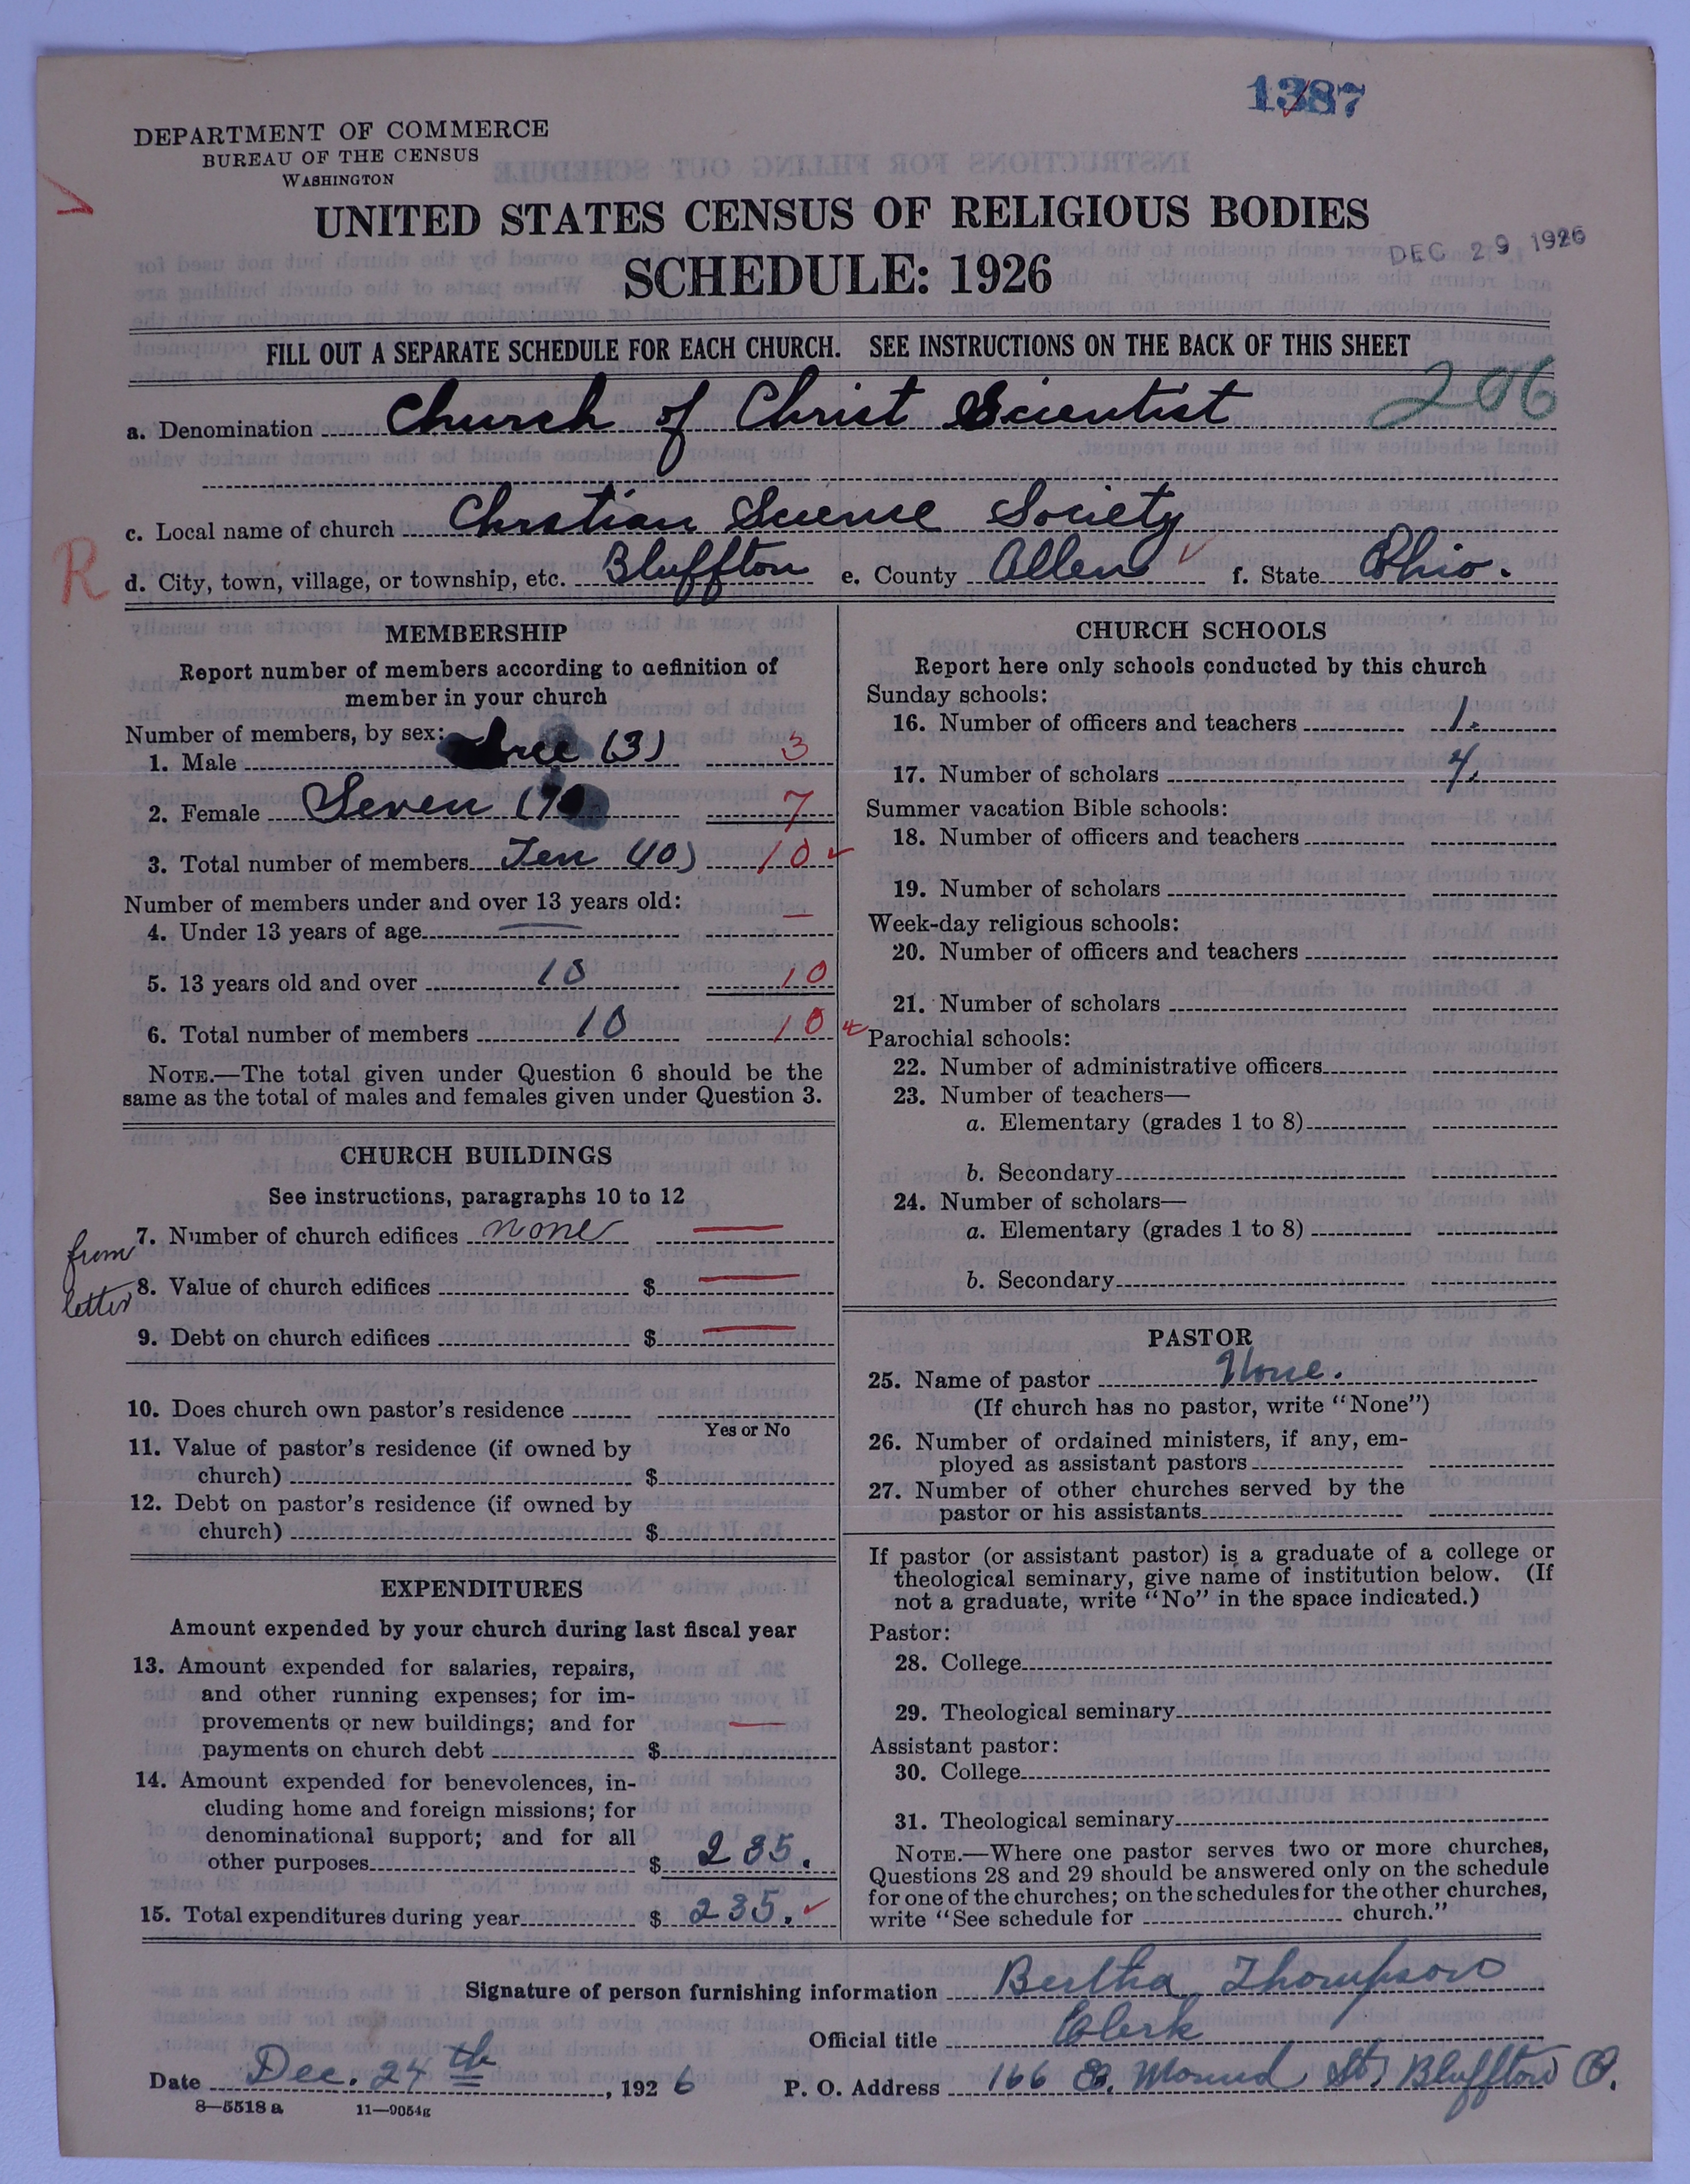 1387
DEPARTMENT OF COMMERCE
BUREAU OF THE CENSUS
WASHINGTON
UNITED STATES CENSUS OF RELIGIOUS BODIES
DEC 29 1926
SCHEDULE: 1926
FILL OUT A SEPARATE SCHEDULE FOR EACH CHURCH. SEE INSTRUCTIONS ON THE BACK OF THIS SHEET
206
a. Denomination Church of Christ Scientist
c. Local name of church Chrstian Science Society
R
d. City, town, village, or township, etc. Bluffton e. County Allen f. State Ohio.
MEMBERSHIP
Report number of members according to definition of
member in your church
Number of members, by sex:
1. Male three (3) 3
2. Female Seven (7 7
3. Total number of members Ten (10) 10
Number of members under and over 13 years old:
4. Under 13 years of age — —
5. 13 years old and over 10 10
6. Total number of members 10 10
NOTE.—The total given under Question 6 should be the
same as the total of males and females given under Question 3.
CHURCH BUILDINGS
See instructions, paragraphs 10 to 12
from letter
7. Number of church edifices none —
8. Value of church edifices $ —
9. Debt on church edifices $ —
10. Does church own pastor's residence
Yes or No
11. Value of pastor's residence (if owned by
church) $
12. Debt on pastor's residence (if owned by
church) $
EXPENDITURES
Amount expended by your church during last fiscal year
13. Amount expended for salaries, repairs,
and other running expenses; for im-
provements or new buildings; and for
payments on church debt $ —
14. Amount expended for benevolences, in-
cluding home and foreign missions; for
denominational support; and for all
other purposes $ 235.
15. Total expenditures during year $ 235.
CHURCH SCHOOLS
Report here only schools conducted by this church
Sunday schools:
16. Number of officers and teachers 1.
17. Number of scholars 4.
Summer vacation Bible schools:
18. Number of officers and teachers
19. Number of scholars
Week-day religious schools:
20. Number of officers and teachers
21. Number of scholars
Parochial schools:
22. Number of administrative officers
23. Number of teachers—
a. Elementary (grades 1 to 8)
b. Secondary
24. Number of scholars—
a. Elementary (grades 1 to 8)
b. Secondary
PASTOR
25. Name of pastor None.
(If church has no pastor, write "None")
26. Number of ordained ministers, if any, em-
ployed as assistant pastors
27. Number of other churches served by the
pastor or his assistants
If pastor (or assistant pastor) is a graduate of a college or
theological seminary, give name of institution below. (If
not a graduate, write "No" in the space indicated.)
Pastor:
28. College
29. Theological seminary
Assistant pastor:
30. College
31. Theological seminary
NOTE.—Where one pastor serves two or more churches,
Questions 28 and 29 should be answered only on the schedule
for one of the churches; on the schedules for the other churches,
write "See schedule for church."
Signature of person furnishing information Bertha Thompson
Official title Clerk
Date Dec. 24th, 1926 P. O. Address 166 E. Mound St, Bluffton O.
8—5518 a 11—9054g